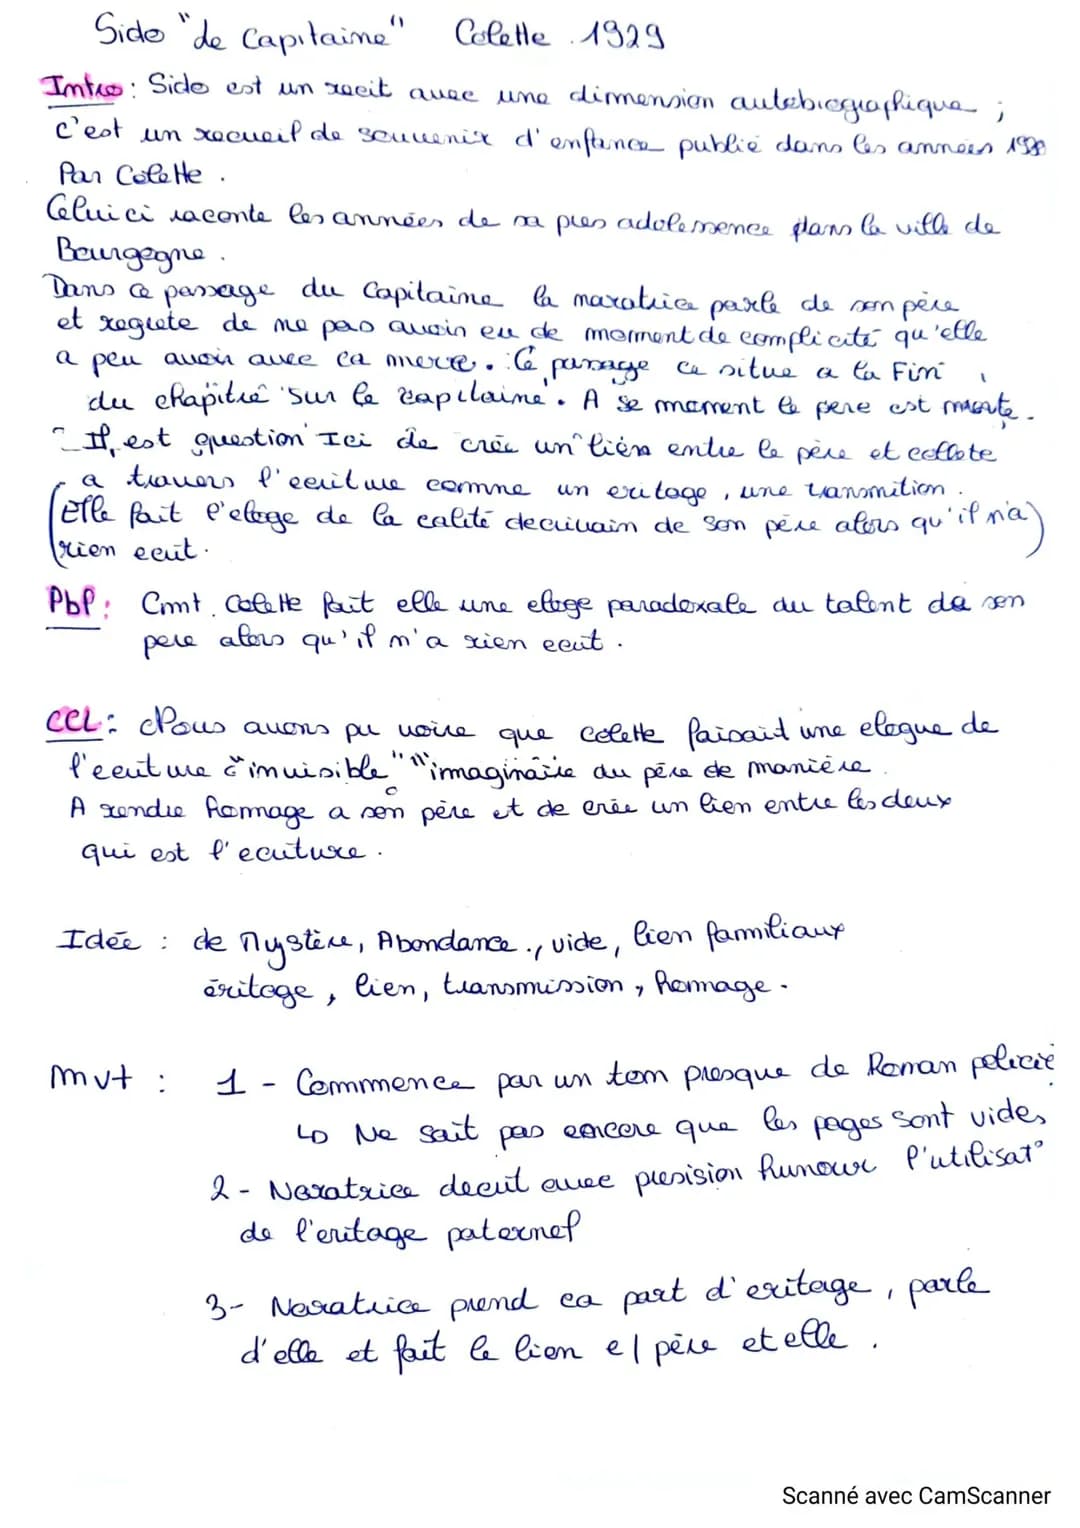 Sido "de Capitaine" Colette. 1929
Intro : Sido est un recit avec une dimension autobiographique ;
c'est un recueil de souvenir d'enfance publié dans les années
Par Colette.
Celui ci raconte les années de sa pres adolessence dans la ville de
Bourgogne.
Dans ce passage du Capitaine la naratrice parle de son père
et regrete de ne pas avoir eu de moment de complicité qu'elle
a peu avoir avec ca merre. Ce passage ce situe a la Fin
du chapitre Sur le capitaine. A se moment le pere est morte.
- Il est question Ici de crée un lien entre le père et collote
a travers l'ecriture comme un eritage, une transmition.
(Elle fait l'eloge de la calité decrivain de son père alors qu'il n'a
rien ecrit.)
Pbl : Cmt. Colette fait elle une eloge paradoxale du talent de son
pere alors qu'il n'a rien ecrit.
CCL : Nous avons pu voire que Colette faisait une elogue de
l'ecriture "invisible" "imaginaire du père de manière
A rendre homage a son père et de crée un lien entre les deux
qui est l'ecriture.
Idée : de Mystère, Abondance., vide, lien familiaux
éritage, lien, transmission, homage.
mvt : 1 - Commence par un ton presque de Roman policié
↳ Ne sait pas encore que les pages sont vides
2 - Naratrice decrit avec presision humour l'utilisat°
de l'eritage paternel
3- Naratrice prend ca part d'eritage, parle
d'elle et fait le lien e/ père et elle.
Scanné avec CamScanner